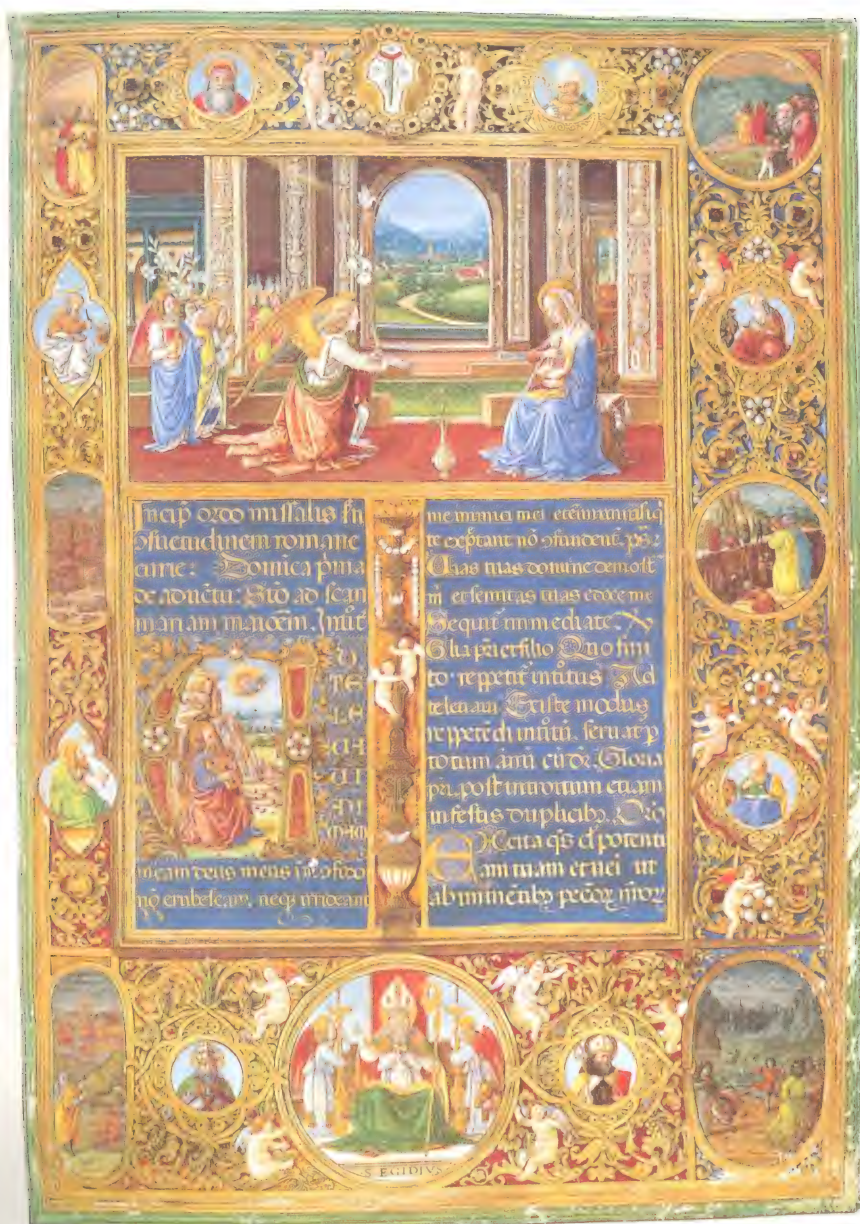 Incip̄ ordo missalis
cōsuetudinem romane
curie: Domīca p̄ma
de aduētu: Stō ad scam
mariam maiorē. Intūt
A
D
TE
LE
UA
UI
NI
MAM
meam deus meus ī te cōfido
nō erubescam, neqȝ irrideant
me inimici mei etenim
te expectant nō cōfundent. ps.
Uias tuas domine
et semitas tuas edoce me
Sequit̄ immediate.
Glīa patri et filio Quo fini
to repetit̄ intūtus Ad
te leuaui Et iste modus
repetēdi intūtū, seruat̄ p
totum ānū cū dr̄. Gloria
pr̄i. post introitum etiam
in festis duplicibȝ. Oro
Excita qs̄ dn̄e potenti
am tuam et uei ut
ab iminētibȝ pccōȝ nr̄oȝ
S EGIDIVS